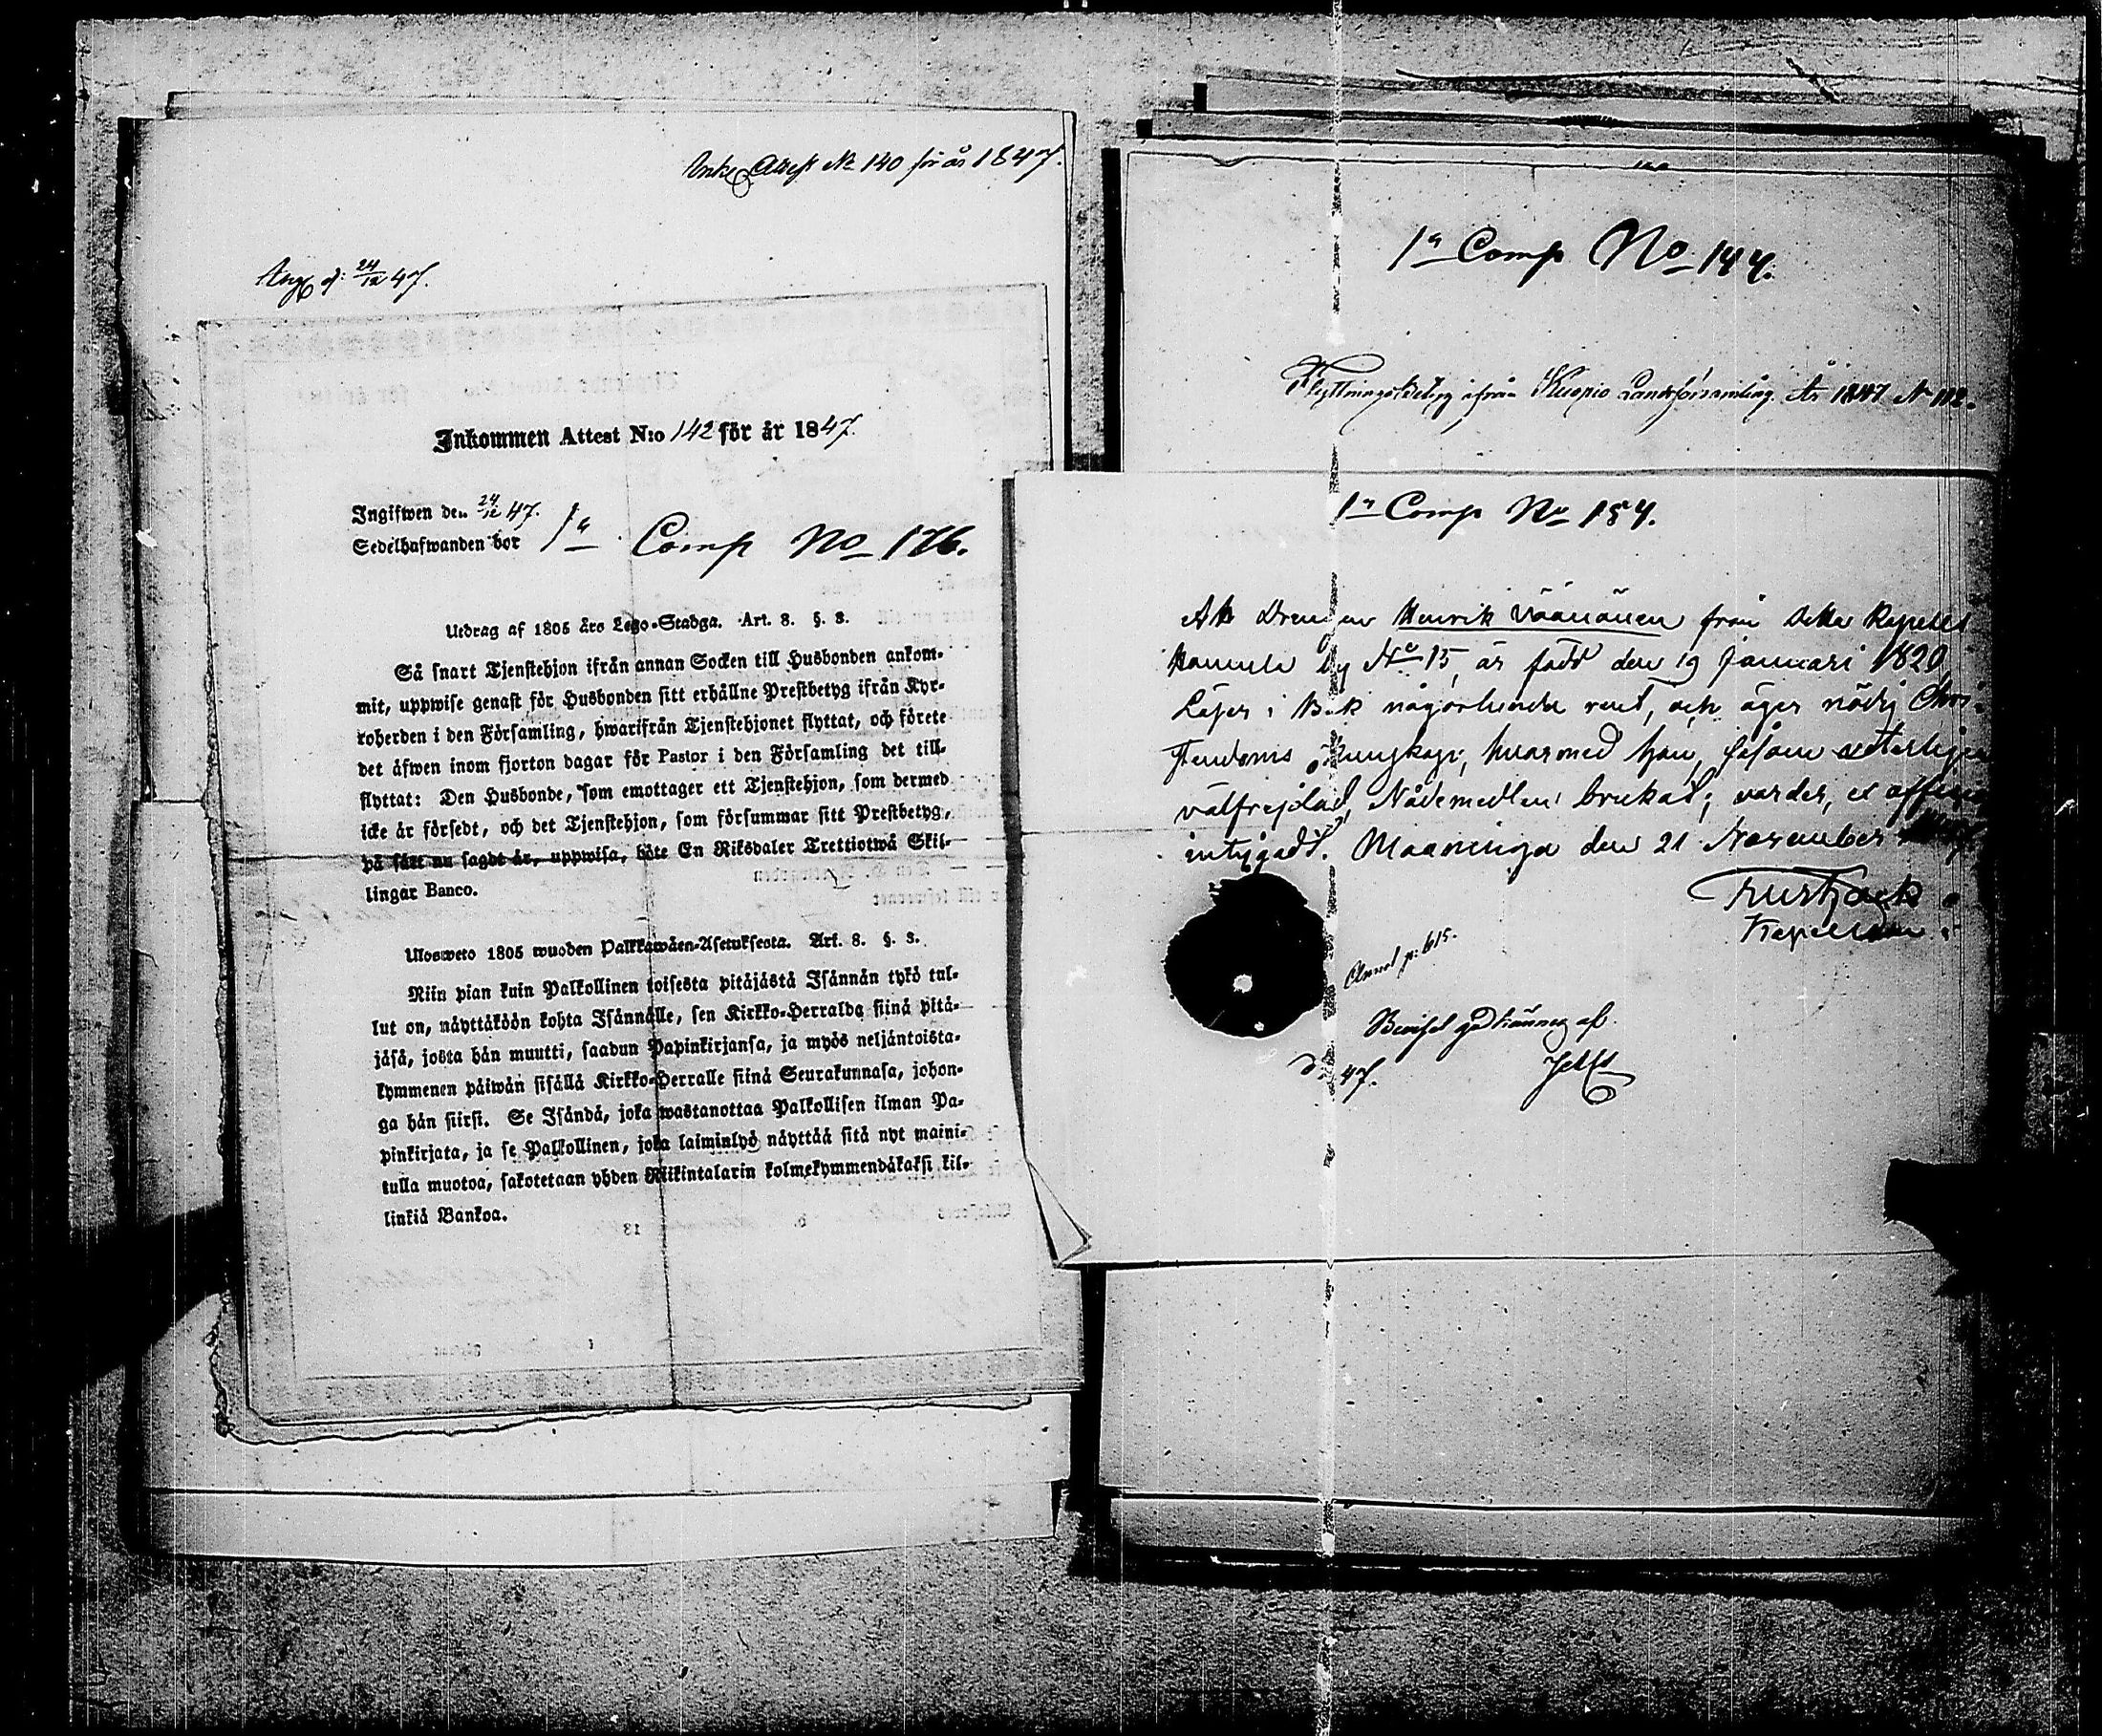 Ink. Attest No 140 för år 1847.
Ang. d: 24/12 47.
Inkommen Attest N:o 142 för år 1847.
Ingifwen den 24/12 47.
Sedelhafwanden bor 1a Comp No 176.
Utdrag af 1805 års Lego-Stadga. Art. 8. §. 3.
Så snart Tjenstehjon ifrån annan Socken till Husbonden ankom-
mit, uppwise genast för Husbonden sitt erhållne Prestbetyg ifrån Kyr-
koherden i den Församling, hwarifrån Tjenstehjonet flyttat, och förete
det äfwen inom fjorton dagar för Pastor i den Församling det till-
flyttat: Den Husbonde, som emottager ett Tjenstehjon, som dermed
icke är försedt, och det Tjenstehjon, som försummar sitt Prestbetyg,
på sätt nu sagdt är, uppwisa, böte En Riksdaler Trettiotwå Skil-
lingar Banco.
Ulosweto 1805 wuoden Palkkawäen-Asetuksesta. Art. 8. §. 3.
Niin pian kuin Palkollinen toisesta pitäjästä Isännän tykö tul-
lut on, näyttäköön kohta Isännälle, sen Kirkko-Herralda siinä pitä-
jäsä, josta hän muutti, saadun Papinkirjansa, ja myös neljäntoista-
kymmenen päiwän sisällä Kirkko-Herralle siinä Seurakunnasa, johon-
ga hän siirsi. Se Isändä, joka wastanottaa Palkollisen ilman Pa-
pinkirjata, ja se Palkollinen, joka laiminlyö näyttää sitä nyt maini-
tulla muotoa, sakotetaan yhden Riikintalarin kolmekymmendäkaksi kil-
linkiä Bankoa.
1a Comp No 144.
Flyttningsbetyg ifrån Kuopio Landsförsamling År 1847 No 112.
1a Comp No 184.
Att Drengen Henrik Väänänen från detta Kapells
Hamula by No 15, är född den 19 Januari 1820
Läser i Bok någorlunda rent, och äger nödig Chri-
stendoms kunskap; hvarmed han, såsom
välfrejdad, Nådemedlen brukat; varder,
intygadt. Maaninga den 21 November
Kapellan.
Annot p: 615.
Beviset godkännes af
47.